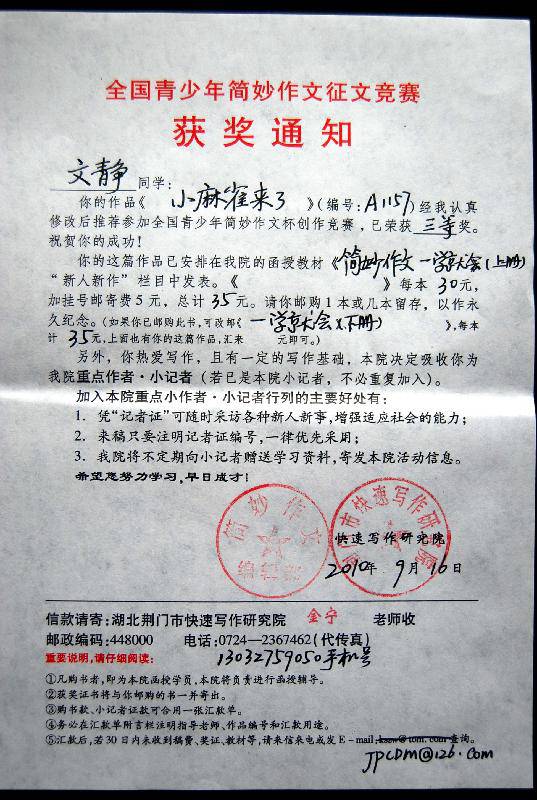 全国青少年简妙作文征文竞赛
获奖通知
文静同学：
你的作品《小麻雀来了》（编号：A1157）经我认真
修改后推荐参加全国青少年简妙作文杯创作竞赛，已荣获三等奖。
祝贺你的成功！
你的这篇作品已安排在我院的函授教材《简妙作文一学就会（上册）
“新人新作”栏目中发表。《 》每本30元，
加挂号邮寄费5元，总计35元。请你邮购1本或几本留存，以作永
久纪念。（如果你已邮购此书，可改邮《一学就会》（下册） 》，每本
计35元，上面也有你的这篇作品，汇来 元即可。）
另外，你热爱写作，且有一定的写作基础，本院决定吸收你为
我院重点作者·小记者（若已是本院小记者，不必重复加入）。
加入本院重点小作者·小记者行列的主要好处有：
1. 凭“记者证”可随时采访各种新人新事，增强适应社会的能力；
2. 来稿只要注明记者证编号，一律优先采用；
3. 我院将不定期向小记者赠送学习资料，寄发本院活动信息。
希望您努力学习，早日成才！
简妙作文
编辑部
荆门市快速写作研究院
快速写作研究院
2010年9月10日
信款请寄：湖北荆门市快速写作研究院 金宁 老师收
邮政编码：448000 电话：0724—2367462（代传真）
重要说明，请仔细阅读： 13032759050手机号
①凡购书者，即为本院函授学员，本院将负责进行函授辅导。
②获奖证书将与你邮购的书一并寄出。
③购书款、小记者证款可合用一张汇款单。
④务必在汇款单附言栏注明指导老师、作品编号和汇款用途。
⑤汇款后，若30日内未收到稿费、奖证、教材等，请来信来电或发E-mail：ksxw@tom.com查询。
JPCDM@126.com